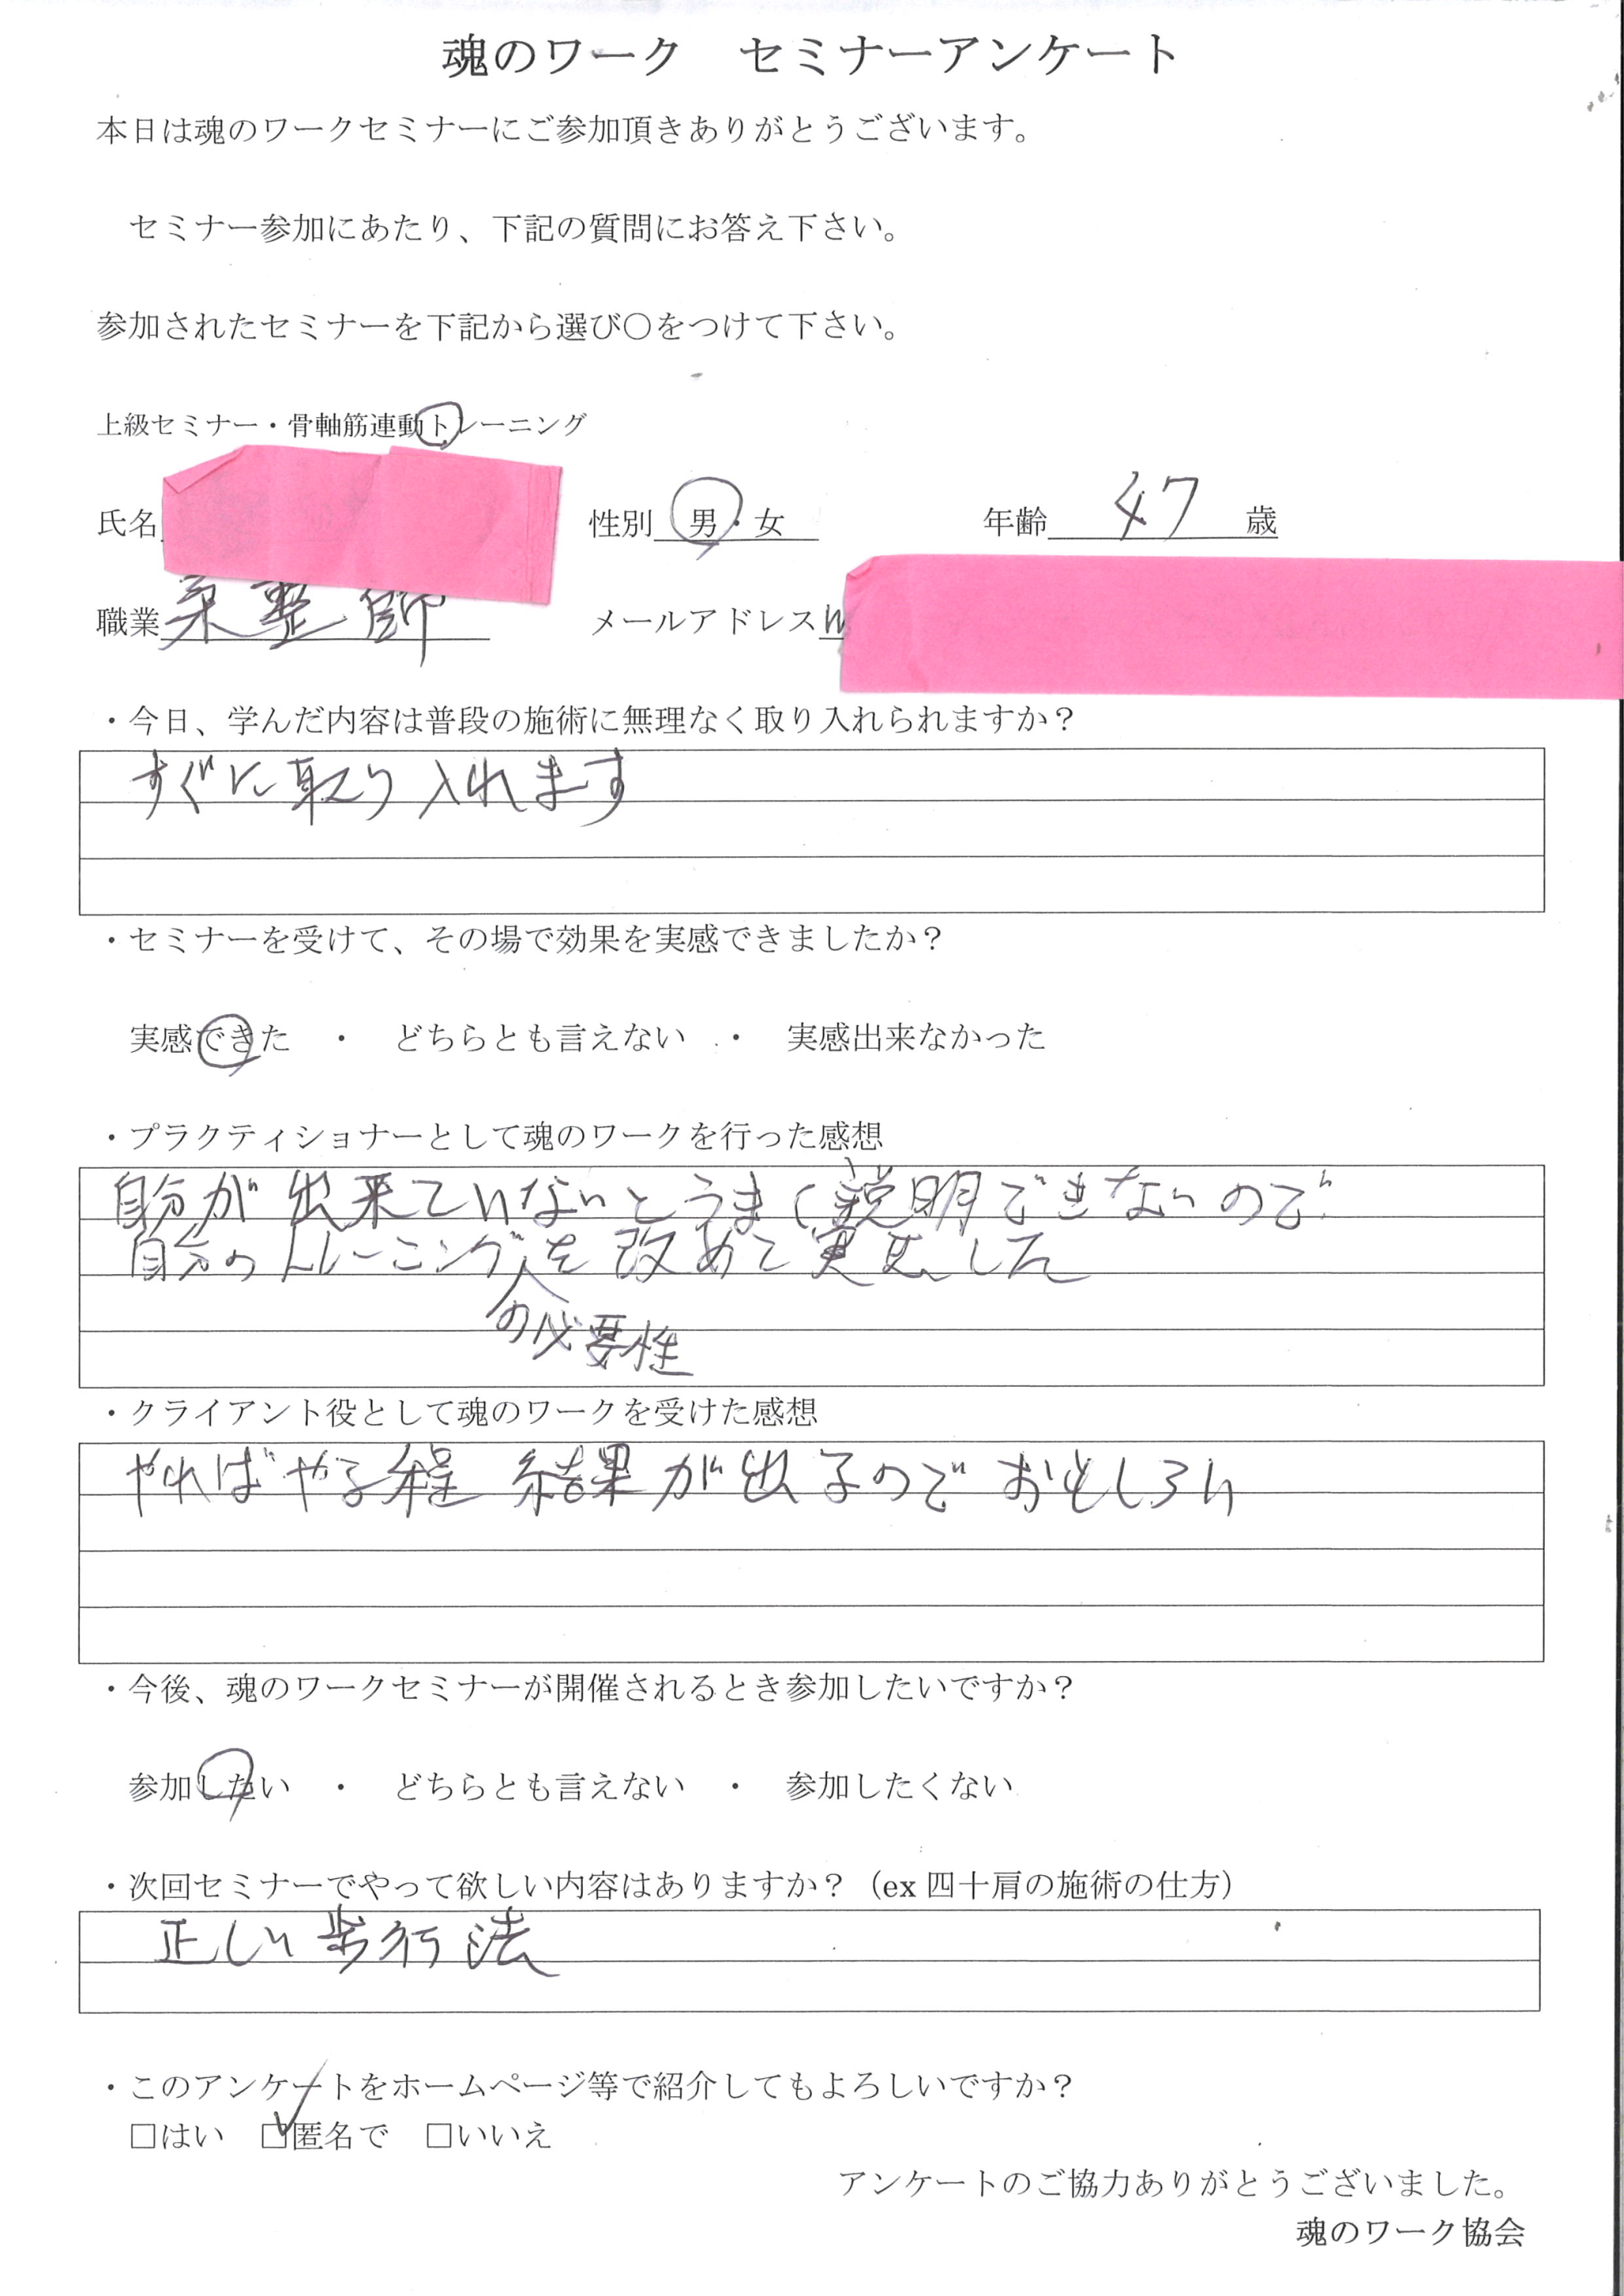 魂のワーク　セミナーアンケート
本日は魂のワークセミナーにご参加頂きありがとうございます。
セミナー参加にあたり、下記の質問にお答え下さい。
参加されたセミナーを下記から選び〇をつけて下さい。
上級セミナー・骨軸筋連動トレーニング
氏名　性別　男・女　年齢　47　歳
職業　柔整師　メールアドレス
・今日、学んだ内容は普段の施術に無理なく取り入れられますか？
すぐに取り入れます
・セミナーを受けて、その場で効果を実感できましたか？
実感できた　・　どちらとも言えない　・　実感出来なかった
・プラクティショナーとして魂のワークを行った感想
自分が出来ていないとうまく説明できないので
自分のトレーニングを改めて実感した
の必要性
・クライアント役として魂のワークを受けた感想
やればやる程 結果が出るので おもしろい
・今後、魂のワークセミナーが開催されるとき参加したいですか？
参加したい　・　どちらとも言えない　・　参加したくない
・次回セミナーでやって欲しい内容はありますか？（ex 四十肩の施術の仕方）
正しい歩行法
・このアンケートをホームページ等で紹介してもよろしいですか？
□はい　□匿名で　□いいえ
アンケートのご協力ありがとうございました。
魂のワーク協会